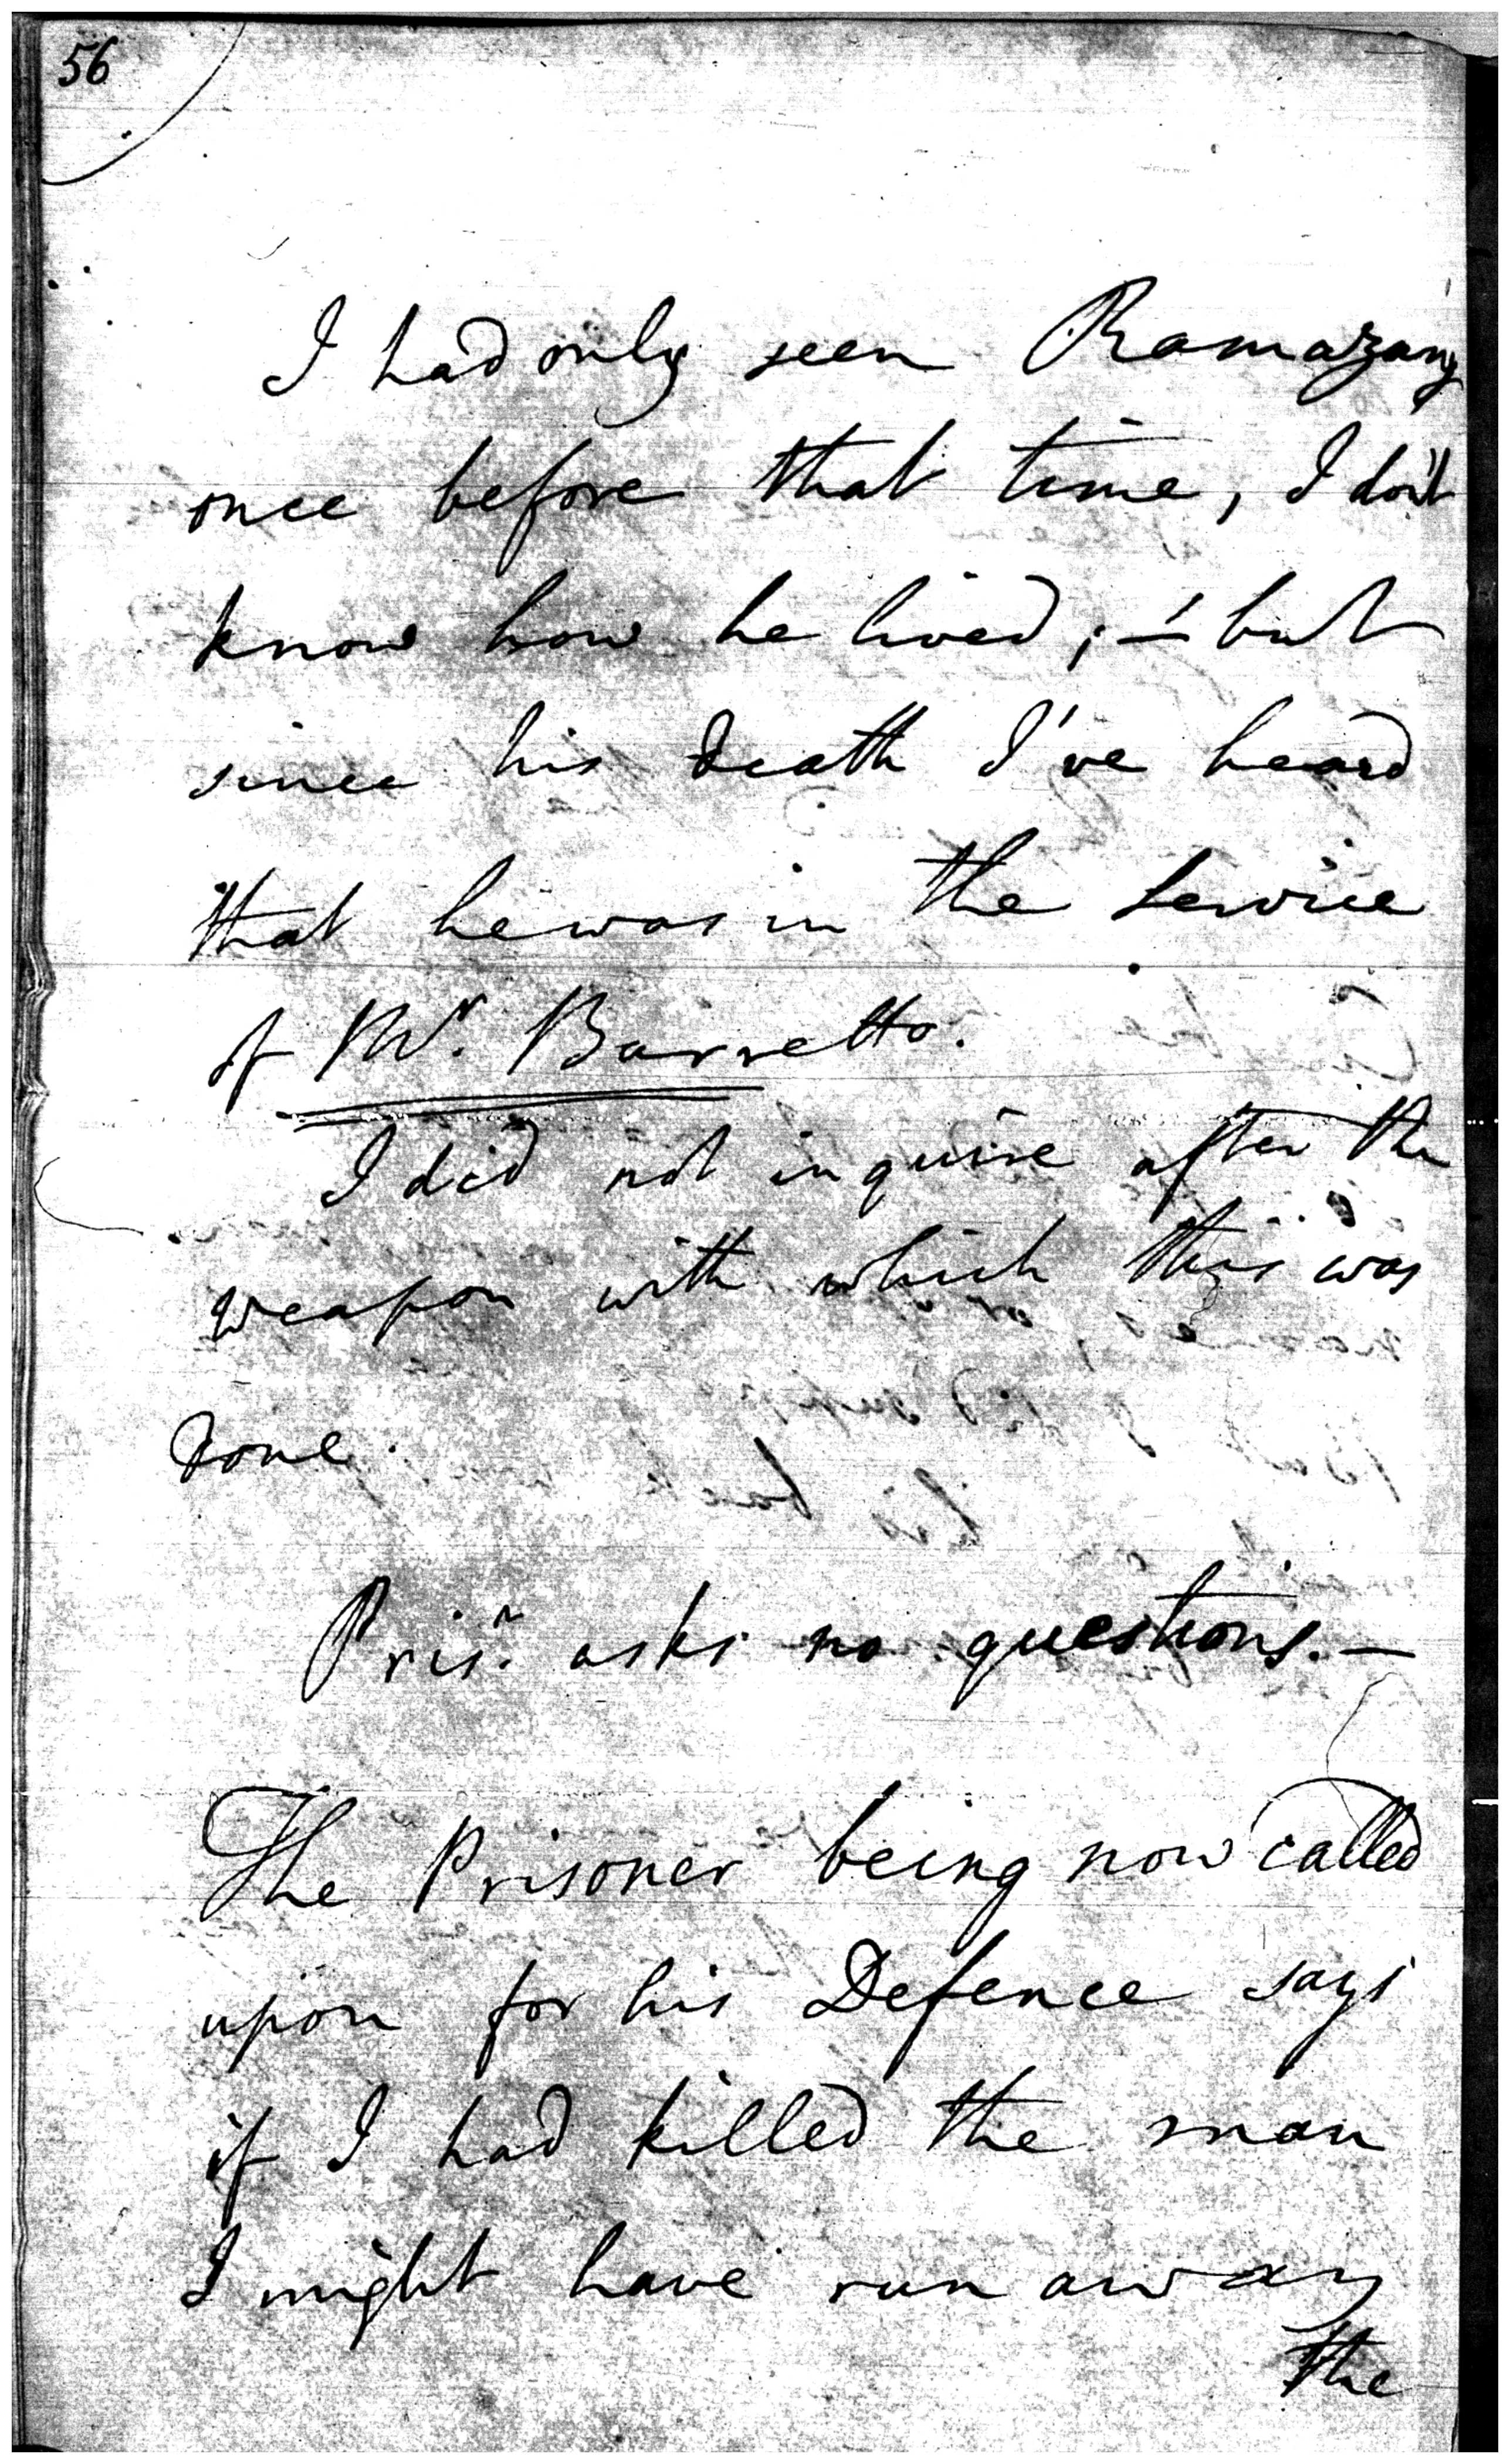 56
I had only seen Ramazany
once before that time, I don't
know how he lived; – but
since his death I've heard
that he was in the Service
of Mr. Barretto.
I did not inquire after the
weapon with which this was
done.
Prisr. asks no questions. –
The Prisoner being now called
upon for his Defence says
if I had killed the man
I might have run away
the